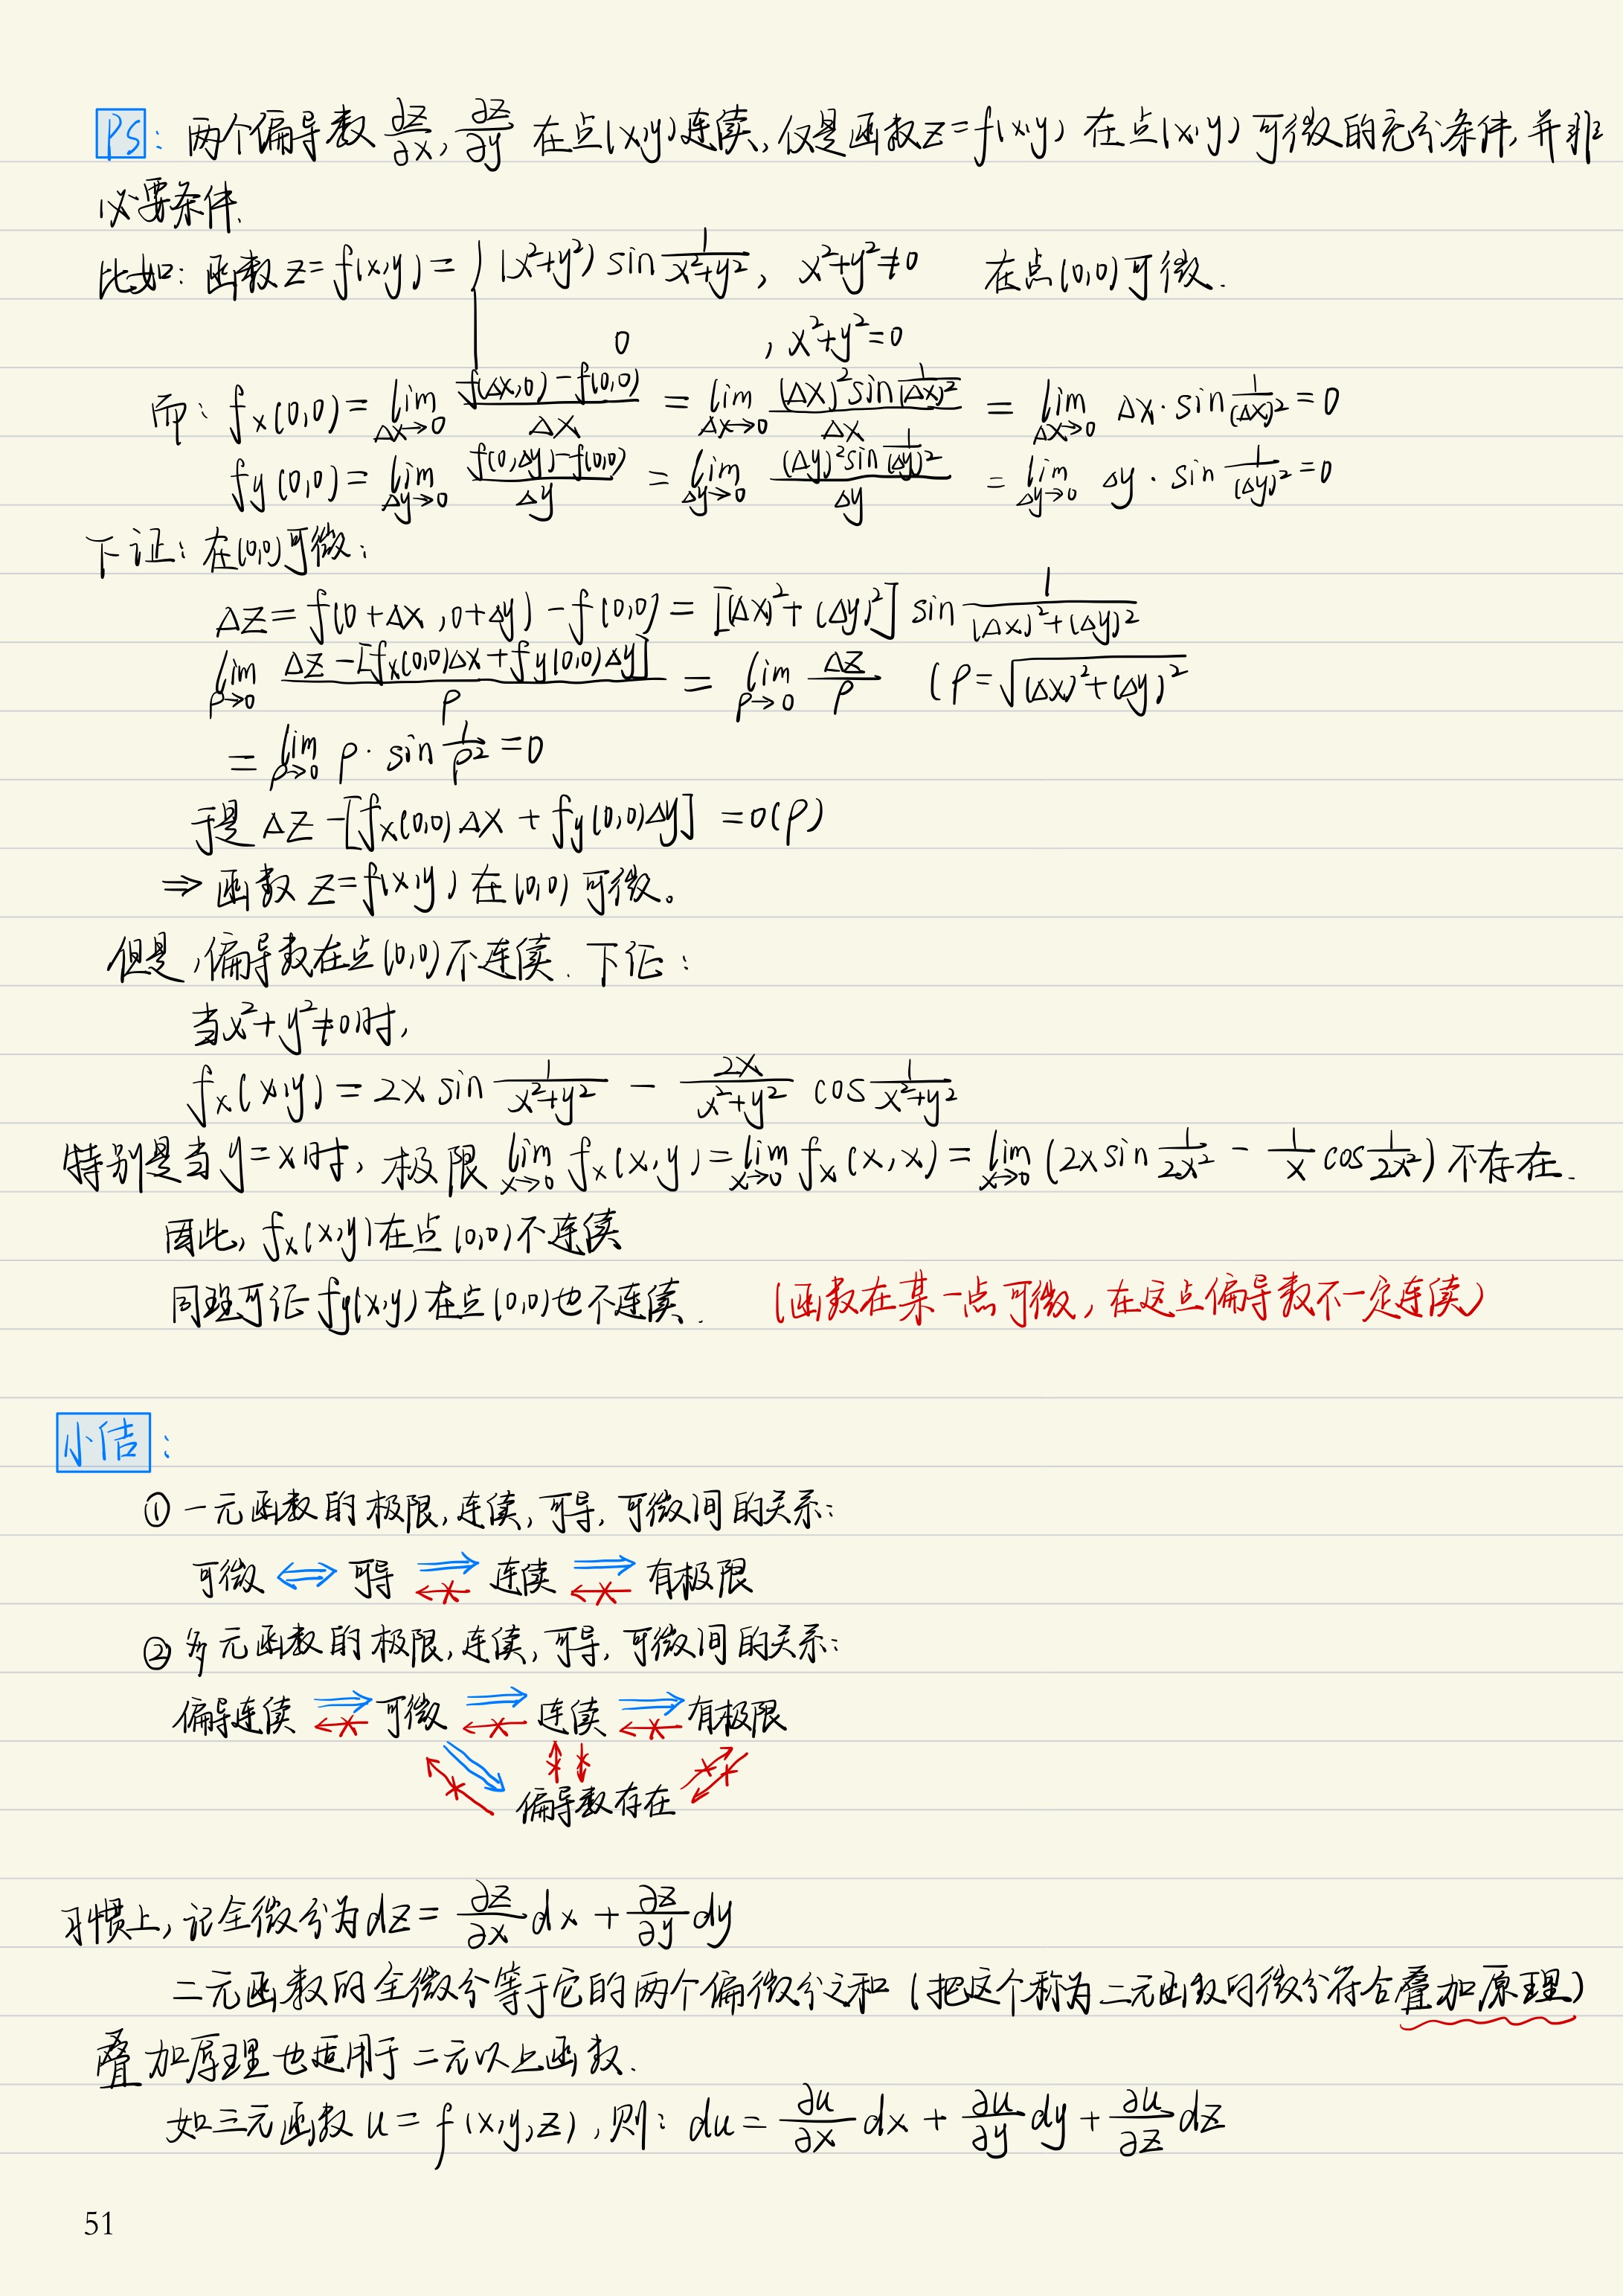 PS: 两个偏导数 ∂z/∂x, ∂z/∂y 在点(x,y)连续, 仅是函数z=f(x,y) 在点(x,y) 可微的充分条件, 并非
必要条件.
比如: 函数 z=f(x,y)= { (x²+y²) sin 1/(x²+y²), x²+y²≠0 在点(0,0)可微.
0 , x²+y²=0
而: f_x(0,0)= lim_{Δx→0} (f(Δx,0)-f(0,0))/Δx = lim_{Δx→0} ((Δx)² sin 1/(Δx)²)/Δx = lim_{Δx→0} Δx·sin 1/(Δx)² =0
f_y(0,0)= lim_{Δy→0} (f(0,Δy)-f(0,0))/Δy = lim_{Δy→0} ((Δy)² sin 1/(Δy)²)/Δy = lim_{Δy→0} Δy·sin 1/(Δy)² =0
下证: 在(0,0)可微:
Δz= f(0+Δx, 0+Δy) - f(0,0) = [(Δx)²+(Δy)²] sin 1/((Δx)²+(Δy)²)
lim_{ρ→0} (Δz-[f_x(0,0)Δx+f_y(0,0)Δy])/ρ = lim_{ρ→0} Δz/ρ (ρ=√((Δx)²+(Δy)²)
= lim_{ρ→0} ρ·sin 1/ρ² =0
于是 Δz-[f_x(0,0)Δx + f_y(0,0)Δy] =o(ρ)
⇒ 函数 z=f(x,y) 在(0,0) 可微。
但是, 偏导数在点(0,0)不连续. 下证:
当x²+y²≠0时,
f_x(x,y)= 2x sin 1/(x²+y²) - 2x/(x²+y²) cos 1/(x²+y²)
特别是当y=x时, 极限 lim_{x→0} f_x(x,y)= lim_{x→0} f_x(x,x)= lim_{x→0} (2x sin 1/(2x²) - 1/x cos 1/(2x²)) 不存在.
因此, f_x(x,y)在点(0,0)不连续
同理可证 f_y(x,y) 在点(0,0)也不连续. (函数在某一点可微, 在这点偏导数不一定连续)
小结:
① 一元函数的极限, 连续, 可导, 可微间的关系:
可微 ⇔ 可导 ⇒ 连续 ⇒ 有极限
② 多元函数的极限, 连续, 可导, 可微间的关系:
偏导连续 ⇒ 可微 ⇒ 连续 ⇒ 有极限
偏导数存在
习惯上, 记全微分为dz= ∂z/∂x dx + ∂z/∂y dy
二元函数的全微分等于它的两个偏微分之和 (把这个称为二元函数的微分符合叠加原理)
叠加原理也适用于二元以上函数.
如三元函数 u= f(x,y,z), 则: du= ∂u/∂x dx + ∂u/∂y dy + ∂u/∂z dz
51